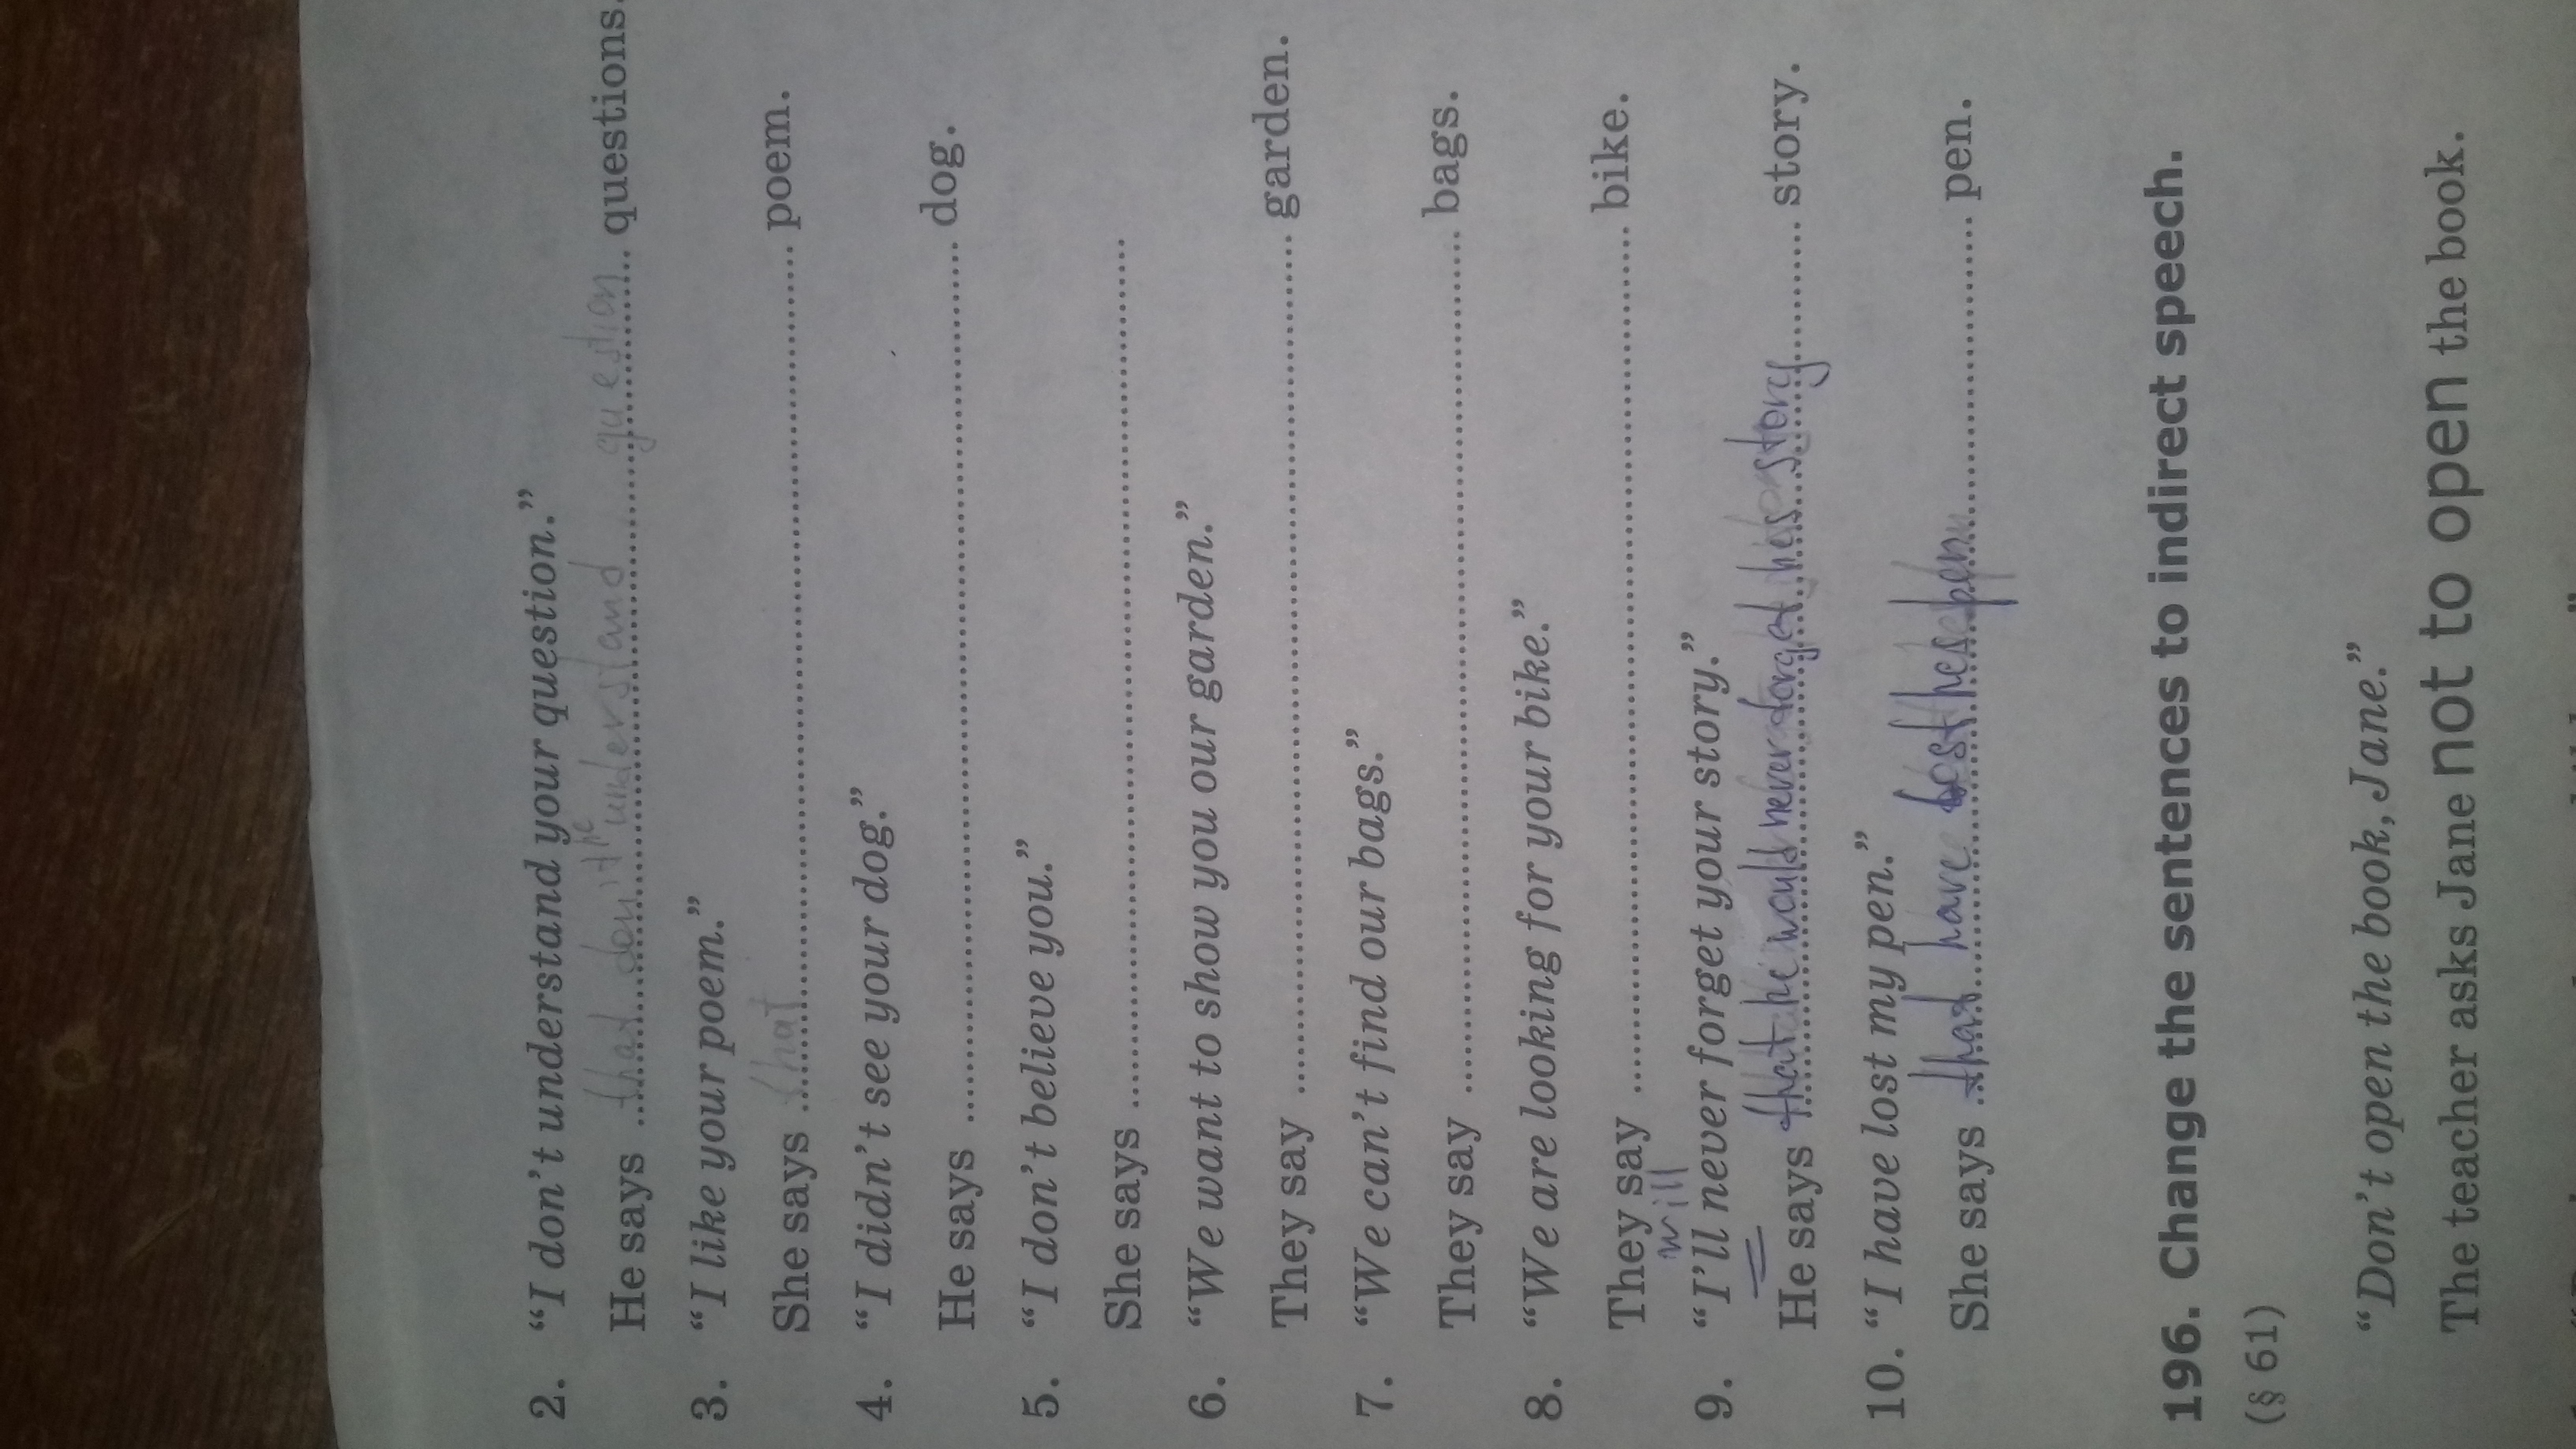 2. “I don’t understand your question.”
He says that don't he understand question questions.
3. “I like your poem.”
She says that poem.
4. “I didn’t see your dog.”
He says dog.
5. “I don’t believe you.”
She says
6. “We want to show you our garden.”
They say garden.
7. “We can’t find our bags.”
They say bags.
8. “We are looking for your bike.”
They say bike.
will
9. “I’ll never forget your story.”
He says that he would never forget story story.
10. “I have lost my pen.”
She says that have lost pen pen.
196. Change the sentences to indirect speech.
(§ 61)
“Don’t open the book, Jane.”
The teacher asks Jane not to open the book.